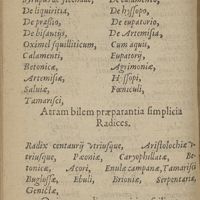 De liquiritia,
De hyssopo,
De prassio,
De eupatorio,
De bisantijs,
De Artemisia,
Oximel squilliticum,
Cum aqua,
Calamenti,
Eupatorij,
Betonicæ,
Agrimoniæ,
Artemisiæ,
Hyssopi
Saluiæ,
Fœniculi,
Tamarisci,
Atram bilem præparantia simplicia
Radices.
Radix centaurij vtriusque, Aristolochiæ v-
triusque, Pæoniæ, Caryophillatæ, Be-
tonicæ, Acori, Enulæ campanæ, Tamarisci
Buglossæ, Ebuli, Brioniæ, Serpentariæ,
Gentiæ,